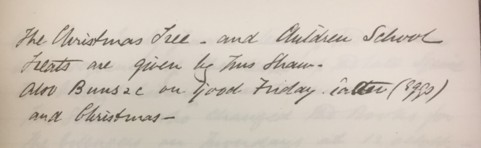 The Christmas Tree - and Children School
Treats are given by Mrs Shaw -
Also Buns &c on Good Friday Easter (Eggs)
and Christmas -